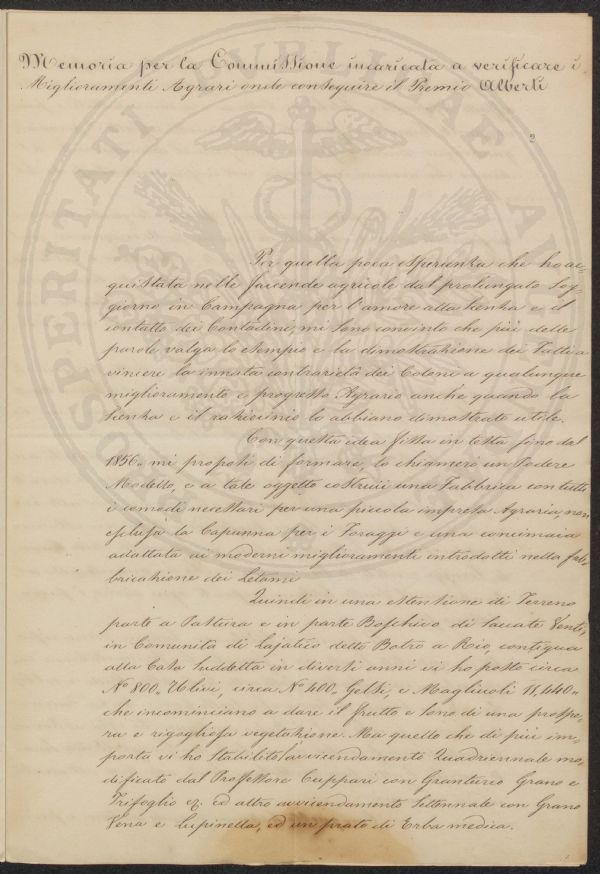 Memoria per la Commissione incaricata a verificare i
Miglioramenti Agrari onde conseguire il Premio Alberti
2
Per quella poca esperienza che ho ac-
quistata nelle faccende agricole dal prolungato Sog-
giorno in Campagna per l'amore alla Scienza e il
contatto dei Contadini, mi sono convinto che più delle
parole valga lo esempio e la dimostrazione dei Fatti a
vincere la innata contrarietà dei Coloni a qualunque
miglioramento e progresso Agrario anche quando la
Scienza e il raziocinio lo abbiano dimostrato utile.
Con questa idea fissa in testa fino dal
1856. mi proposi di formare, lo chiamerò un Podere
Modello, e a tale oggetto costruii una Fabbrica con tutti
i comodi necessari per una piccola impresa Agraria, non
esclusa la Capanna per i Foraggi e una concimaia
adattata ai moderni miglioramenti introdotti nella fab-
bricazione dei Letami
Quindi in una estensione di Terreno
parte a Pastura e in parte Boschivo di Saccate Venti,
in Comunità di Lajatico detto Botro a Rio, contigua
alla Casa suddetta in diversi anni vi ho posto circa
N° 800. Ulivi, circa N° 400. Gelsi, e Magliuoli 11,440.
che incominciano a dare il frutto e sono di una prospe-
ra e rigogliosa vegetazione. Ma quello che di più im-
porta vi ho stabilito l'avvicendamento Quadriennale mo-
dificato dal Professore Cuppari con Granturco Grano e
Trifoglio &. ed altro avvicendamento Settennale con Grano
Vena e Lupinella, ed un prato di Erba medica.